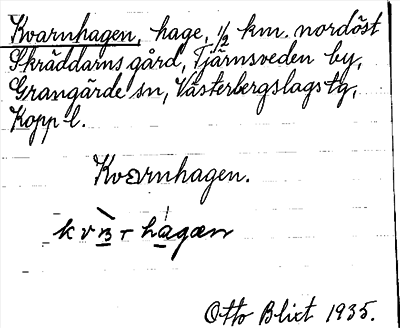 Kvarnhagen, hage, 1/2 km. nordöst
Skräddarns gård, Tjärnsveden by,
Grangärde sn, Västerbergslags tg,
Kopp l.
Kvarnhagen.
Otto Blixt 1935.